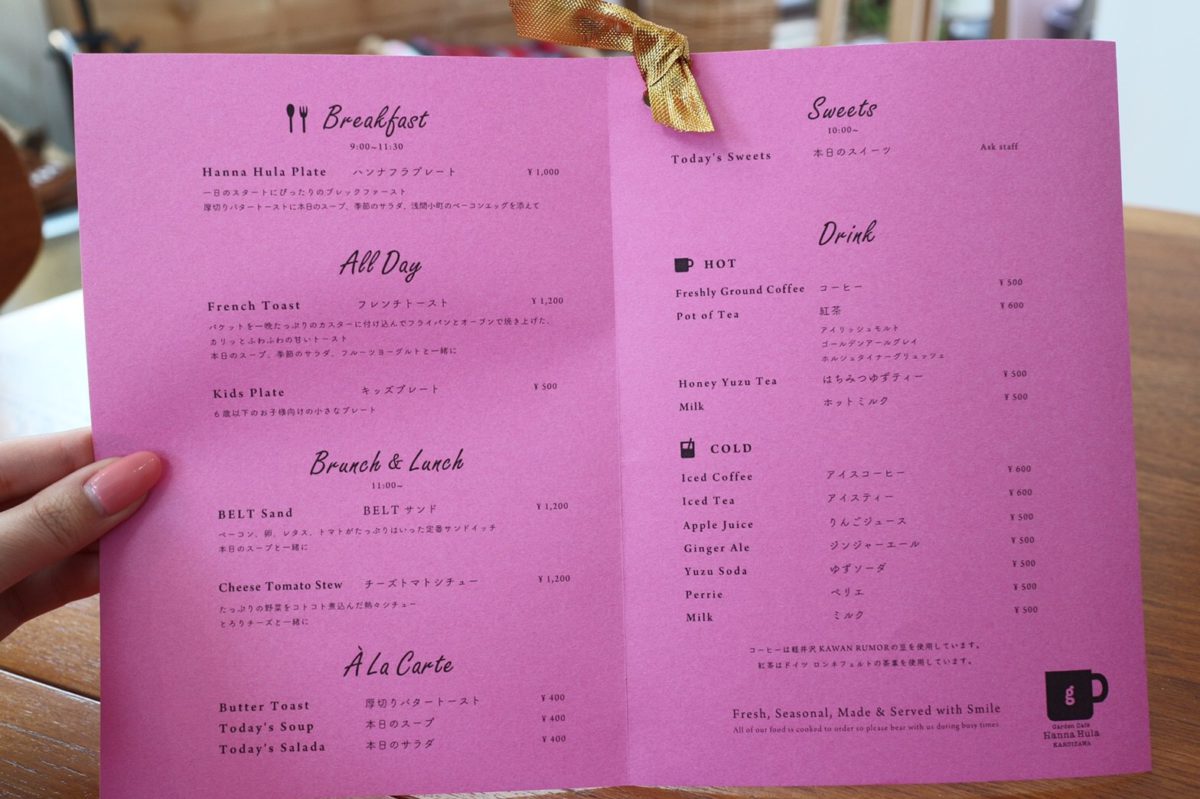 Breakfast
9:00~11:30
Hanna Hula Plate ハンナフラプレート ¥1,000
一日のスタートにぴったりのブレックファースト
厚切りバタートーストに本日のスープ、季節のサラダ、浅間小町のベーコンエッグを添えて
All Day
French Toast フレンチトースト ¥1,200
バケットを一晩たっぷりのカスターに付け込んでフライパンとオーブンで焼き上げた、
カリッとふわふわの甘いトースト
本日のスープ、季節のサラダ、フルーツヨーグルトと一緒に
Kids Plate キッズプレート ¥500
6歳以下のお子様向けの小さなプレート
Brunch & Lunch
11:00~
BELT Sand BELTサンド ¥1,200
ベーコン、卵、レタス、トマトがたっぷりはいった定番サンドイッチ
本日のスープと一緒に
Cheese Tomato Stew チーズトマトシチュー ¥1,200
たっぷりの野菜をコトコト煮込んだ熱々シチュー
とろりチーズと一緒に
À La Carte
Butter Toast 厚切りバタートースト ¥400
Today's Soup 本日のスープ ¥400
Today's Salada 本日のサラダ ¥400
Sweets
10:00~
Today's Sweets 本日のスイーツ Ask staff
Drink
HOT
Freshly Ground Coffee コーヒー ¥500
Pot of Tea 紅茶 ¥600
アイリッシュモルト
ゴールデンアールグレイ
ホルシュタイナーグリュッツェ
Honey Yuzu Tea はちみつゆずティー ¥500
Milk ホットミルク ¥500
COLD
Iced Coffee アイスコーヒー ¥600
Iced Tea アイスティー ¥600
Apple Juice りんごジュース ¥500
Ginger Ale ジンジャーエール ¥500
Yuzu Soda ゆずソーダ ¥500
Perrie ペリエ ¥500
Milk ミルク ¥500
コーヒーは軽井沢 KAWAN RUMORの豆を使用しています。
紅茶はドイツ ロンネフェルトの茶葉を使用しています。
Fresh, Seasonal, Made & Served with Smile
All of our food is cooked to order so please bear with us during busy times
g
Garden Cafe
Hanna Hula
KARUIZAWA